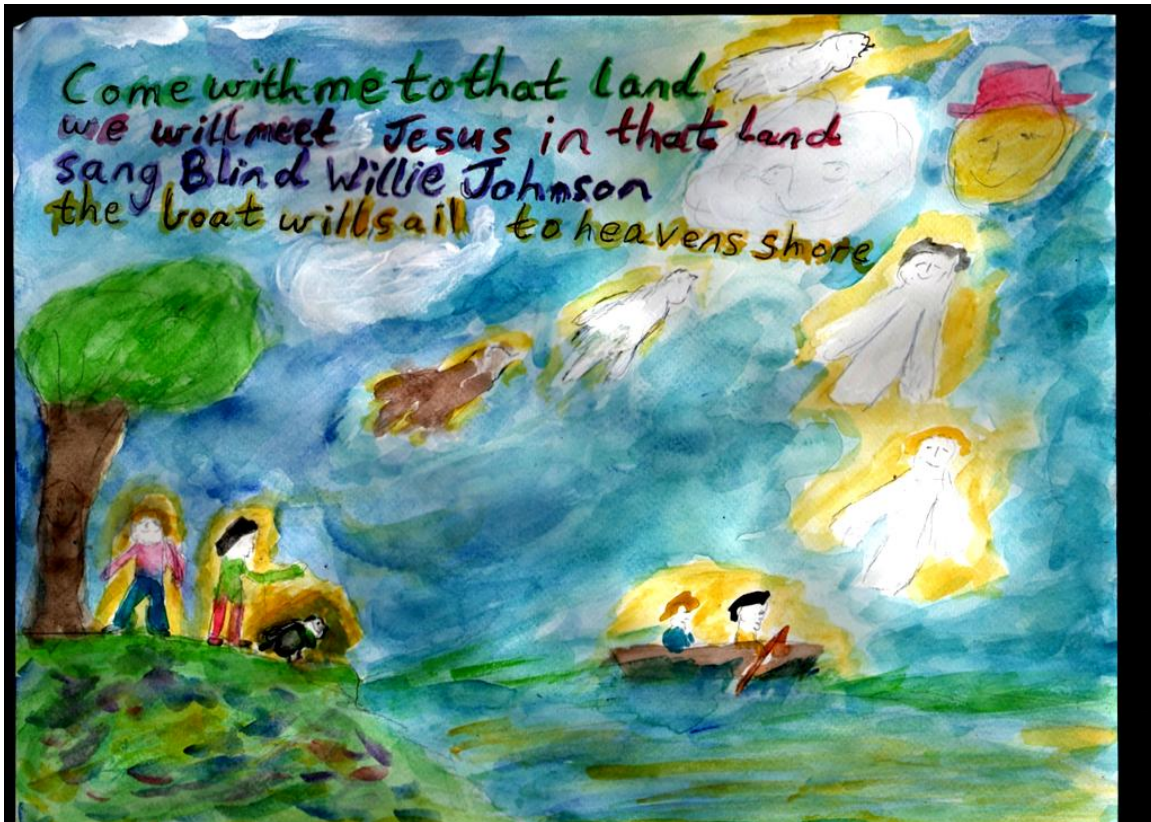 Come with me to that land
we will meet Jesus in that land
sang Blind Willie Johnson
the boat will sail to heavens shore